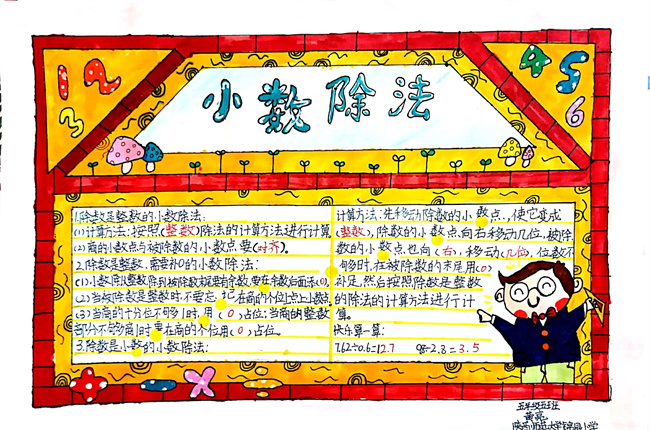 小数除法
1 2 3
4 5 6
1.除数是整数的小数除法:
(1)计算方法:按照(整数)除法的计算方法进行计算
(2)商的小数点与被除数的小数点要(对齐)。
2.除数是整数,需要补0的小数除法:
(1)小数除以整数除到被除数末尾有余数,要在余数后面添(0)。
(2)当被除数是整数时不要忘记在商的个位上点上小数点
(3)当商的十分位不够商1时,用(0)占位;当商的整数
部分不够商1时要在商的个位用(0)占位。
3.除数是小数的小数除法:
计算方法:先移动除数的小数点,使它变成
(整数),除数的小数点向右移动几位,被除
数的小数点也向(右),移动(几位),位数不
够时,在被除数的末尾用(0)
补足,然后按照除数是整数
的除法的计算方法进行计
算。
快乐算一算:
7.62÷0.6=12.7 98÷2.8=3.5
五年级五班